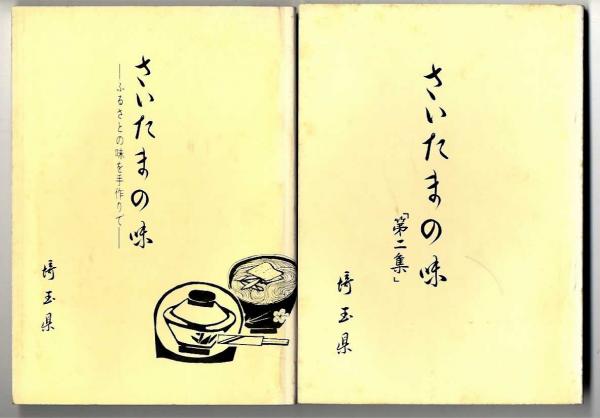 さいたまの味
―ふるさとの味を手作りで―
埼玉県
さいたまの味
「第二集」
埼玉県